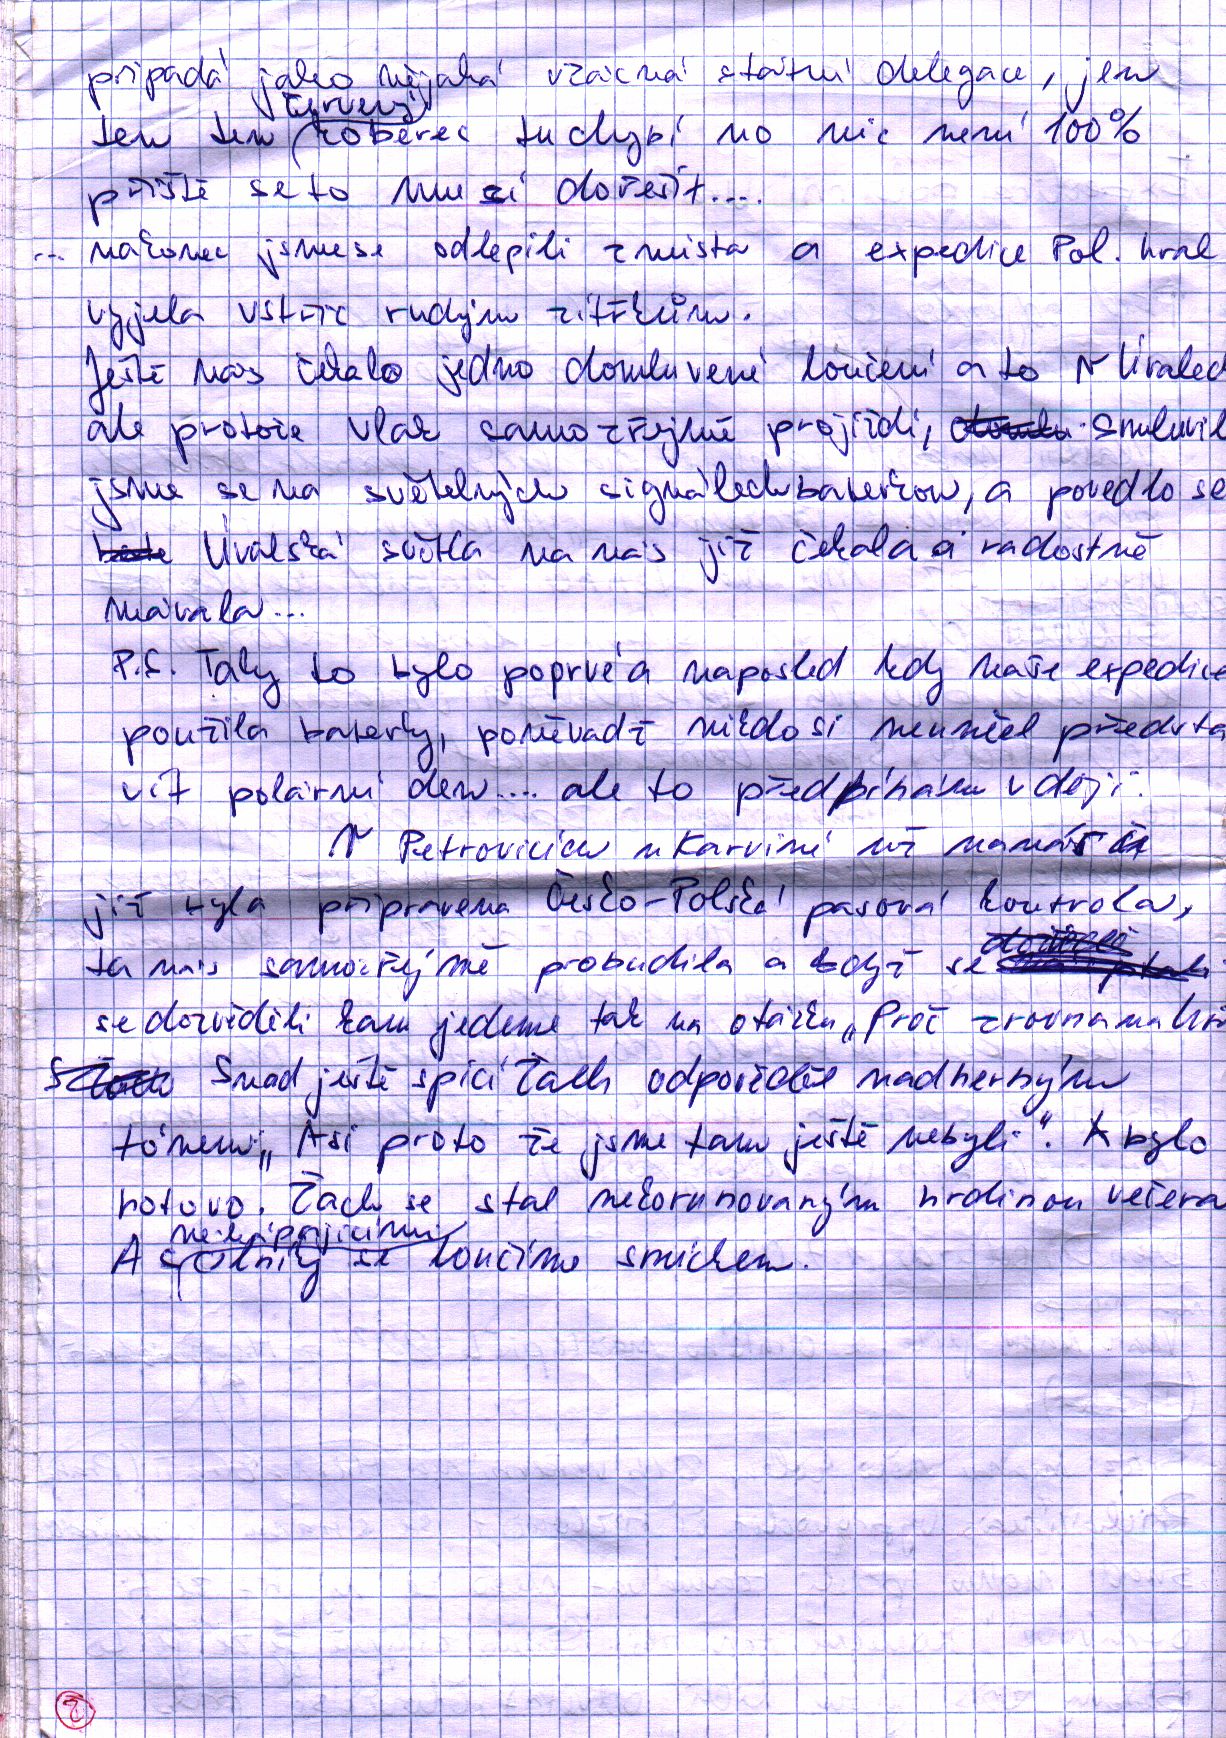 připadá jako nějaká vzácná státní delegace, jen
červený
ten ten koberec tu chybí no nic není 100%
příště se to musí dořešit....
... nakonec jsme se odlepili z místa a expedice Pol. kral
vyjela vstříc rudým zítřkům.
Ještě nás čekalo jedno domluvené loučení a to v Úvalech
ale protože vlak samozřejmě projíždí, smluvil
jsme se na světelných signálech baterkou, a povedlo se
Úvalská světla na nás již čekala a radostně
mávala...
P.S. Tady to bylo poprvé a naposled kdy naše expedice
použila baterky, poněvadž nikdo si neuměl předsta
vit polární den.... ale to předbíhám v ději.
V Petrovicích u Karviné už na nás
již byla připravena Česko-Polská pasová kontrola,
ta nás samozřejmě probudila a když se
se dozvěděli kam jedeme tak na otázku „Proč zrovna na
Snad ještě spící Žach odpověděl nádherným
tónem „Asi proto že jsme tam ještě nebyli". A bylo
hotovo. Žach se stal nekorunovaným hrdinou večera
nechápajícími
A se loučíme smíchem.
2